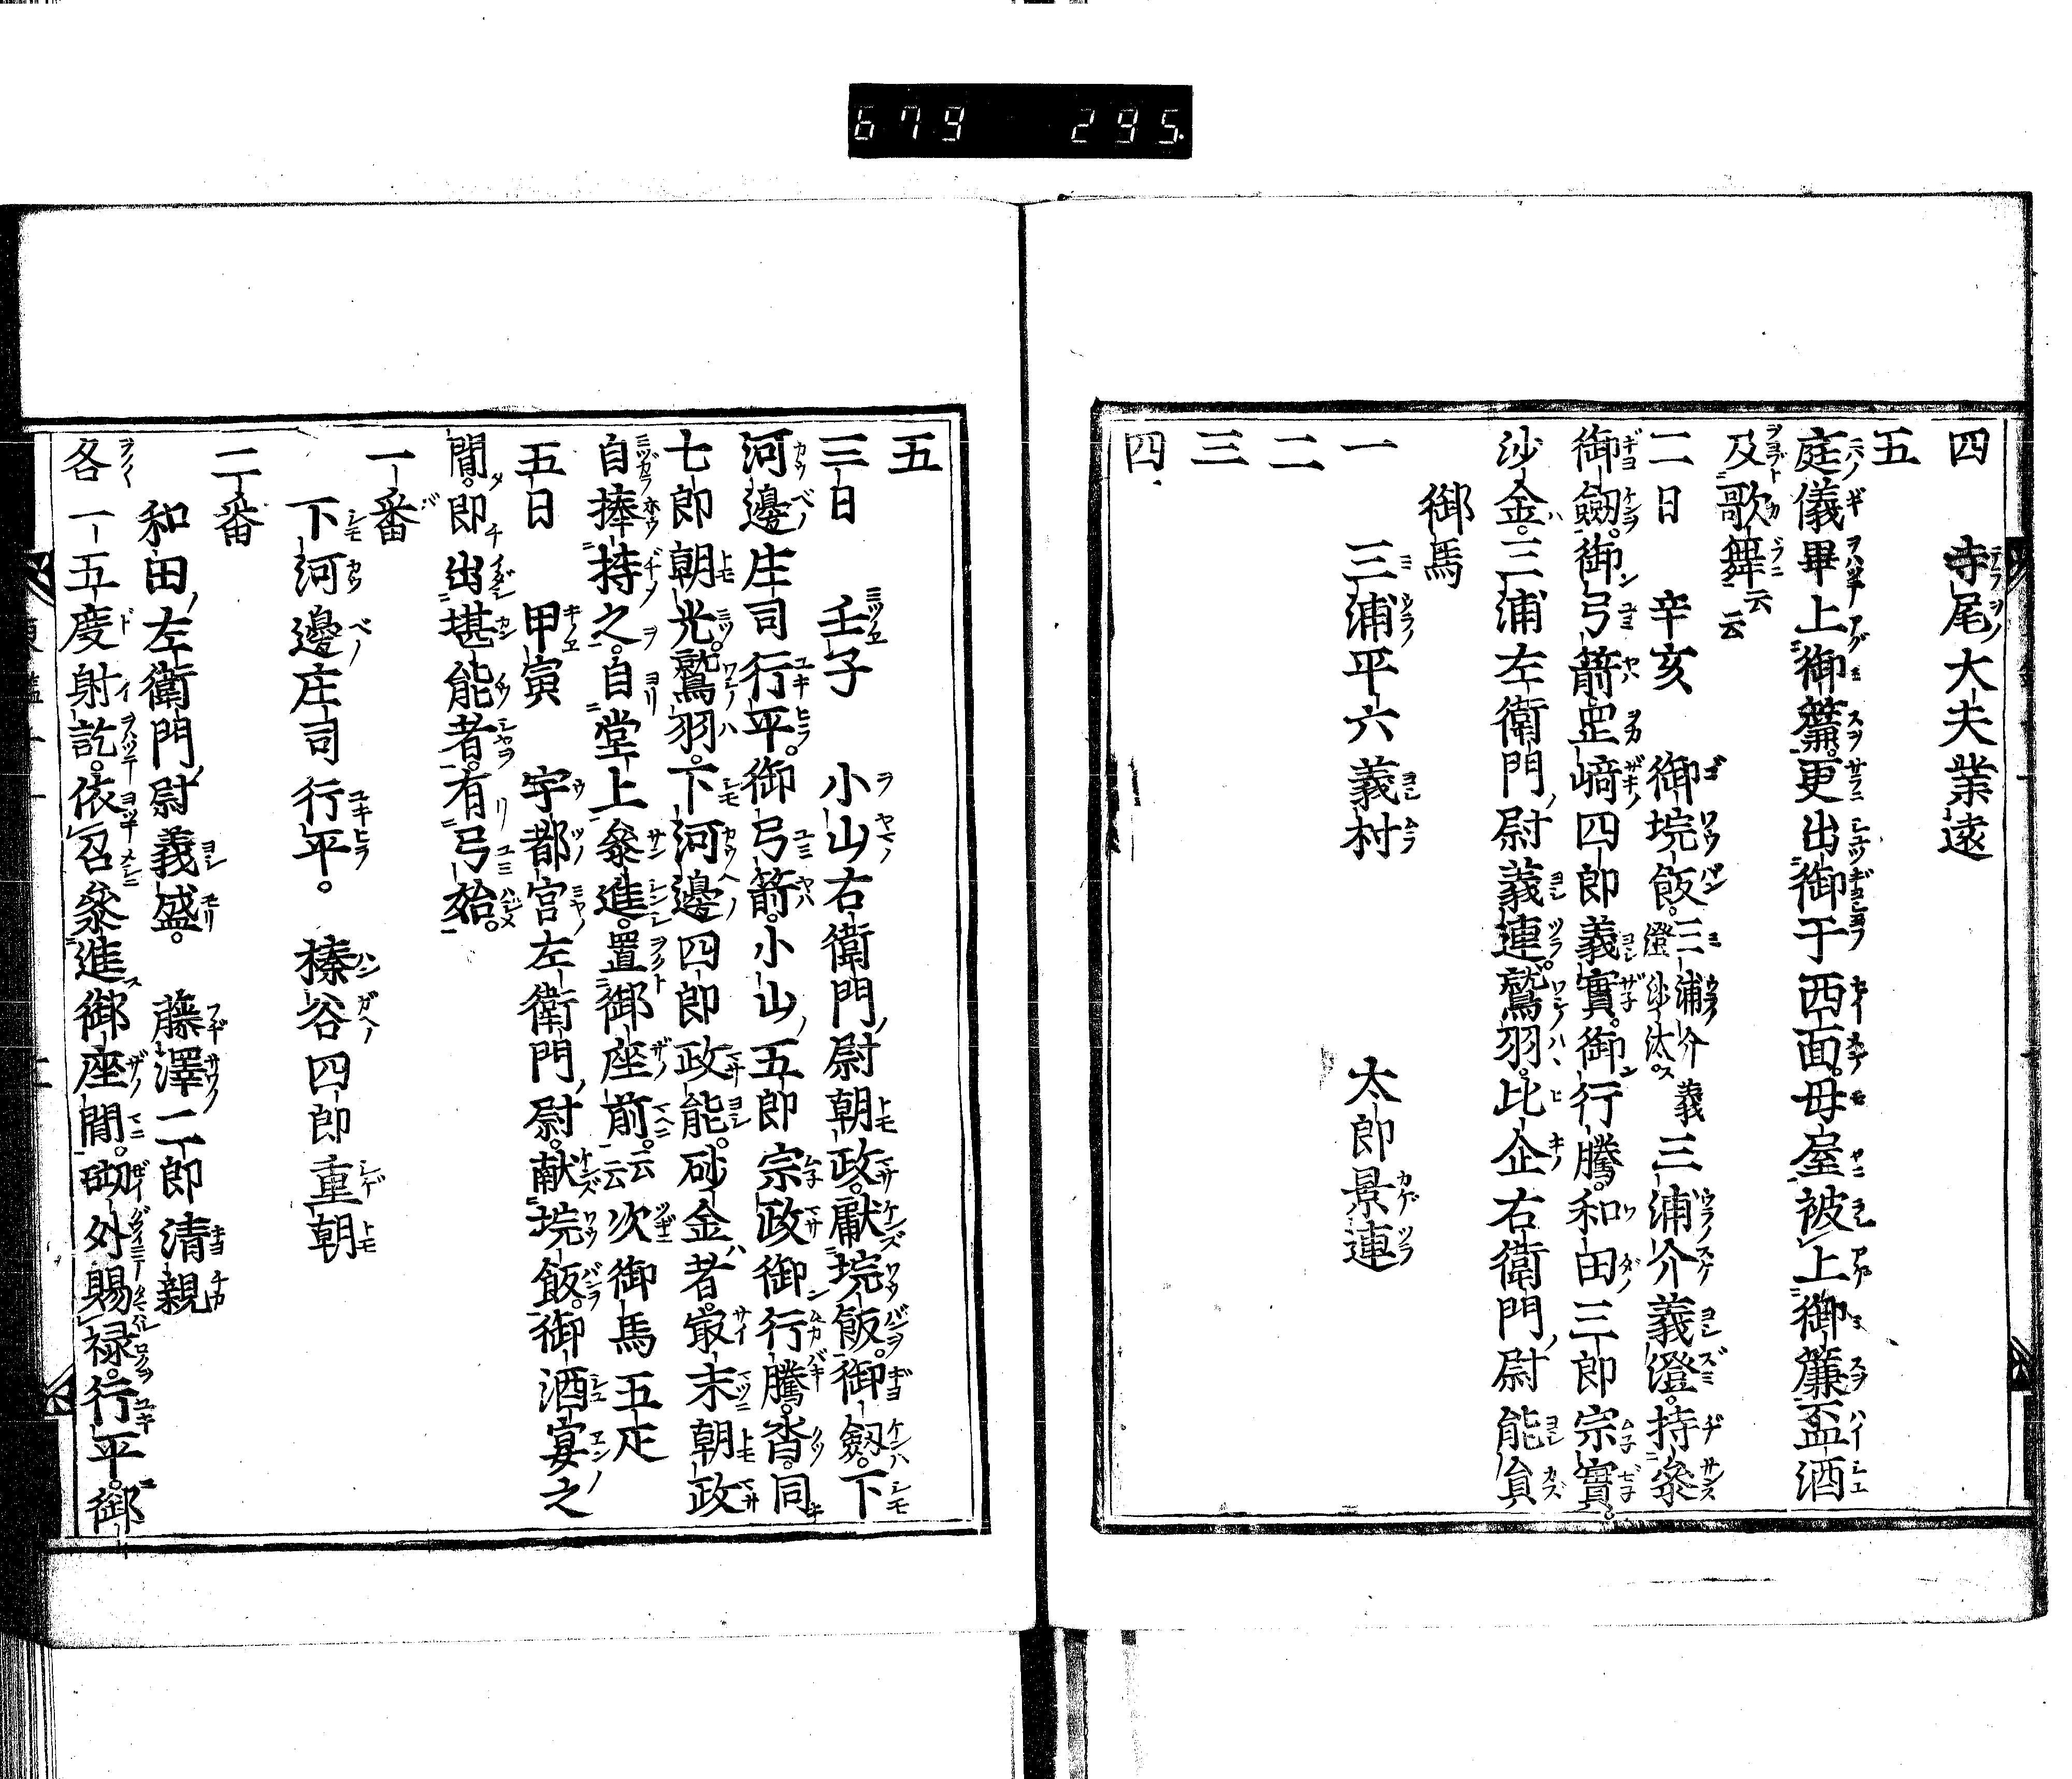 679 295.
四 寺尾大夫業遠
五
庭儀畢上御簾更出御于西面母屋被上御簾盃酒
及歌舞云云
二日 辛亥 御垸飯三浦介義澄沙汰 三浦介義澄持參
御劔御弓箭罡﨑四郎義實御行騰和田三郎宗實
沙金三浦左衛門尉義連鷲羽比企右衛門尉能員
御馬
一 三浦平六義村 太郎景連
二
三
四
五
三日 壬子 小山右衛門尉朝政獻垸飯御劔下
河邊庄司行平御弓箭小山五郎宗政御行騰沓同
七郎朝光鷲羽下河邊四郎政能砂金者㝡末朝政
自捧持之自堂上參進置御座前云云次御馬五疋
五日 甲寅 宇都宮左衛門尉献垸飯御酒宴之
間即出堪能者有弓始
一番
下河邊庄司行平 榛谷四郎重朝
二番
和田左衛門尉義盛 藤澤二郎清親
各一五度射訖依召參進御座間砌外賜禄行平御